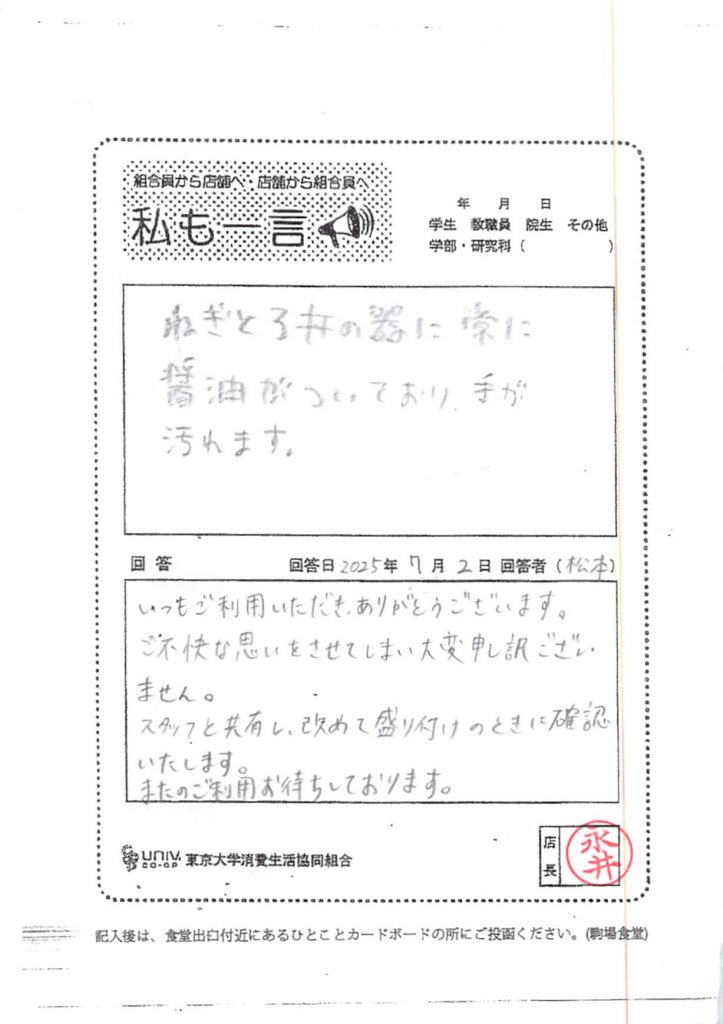 組合員から店舗へ・店舗から組合員へ
私も一言
年 月 日
学生 教職員 院生 その他
学部・研究科( )
ねぎとろ丼の器に常に
醤油がついており、手が
汚れます。
回答 回答日2025年7月2日 回答者(松本)
いつもご利用いただき、ありがとうございます。
ご不快な思いをさせてしまい大変申し訳ござい
ません。
スタッフと共有し、改めて盛り付けのときに確認
いたします。
またのご利用お待ちしております。
univ co-op 東京大学消費生活協同組合
店長 永井
記入後は、食堂出口付近にあるひとことカードボードの所にご投函ください。(駒場食堂)